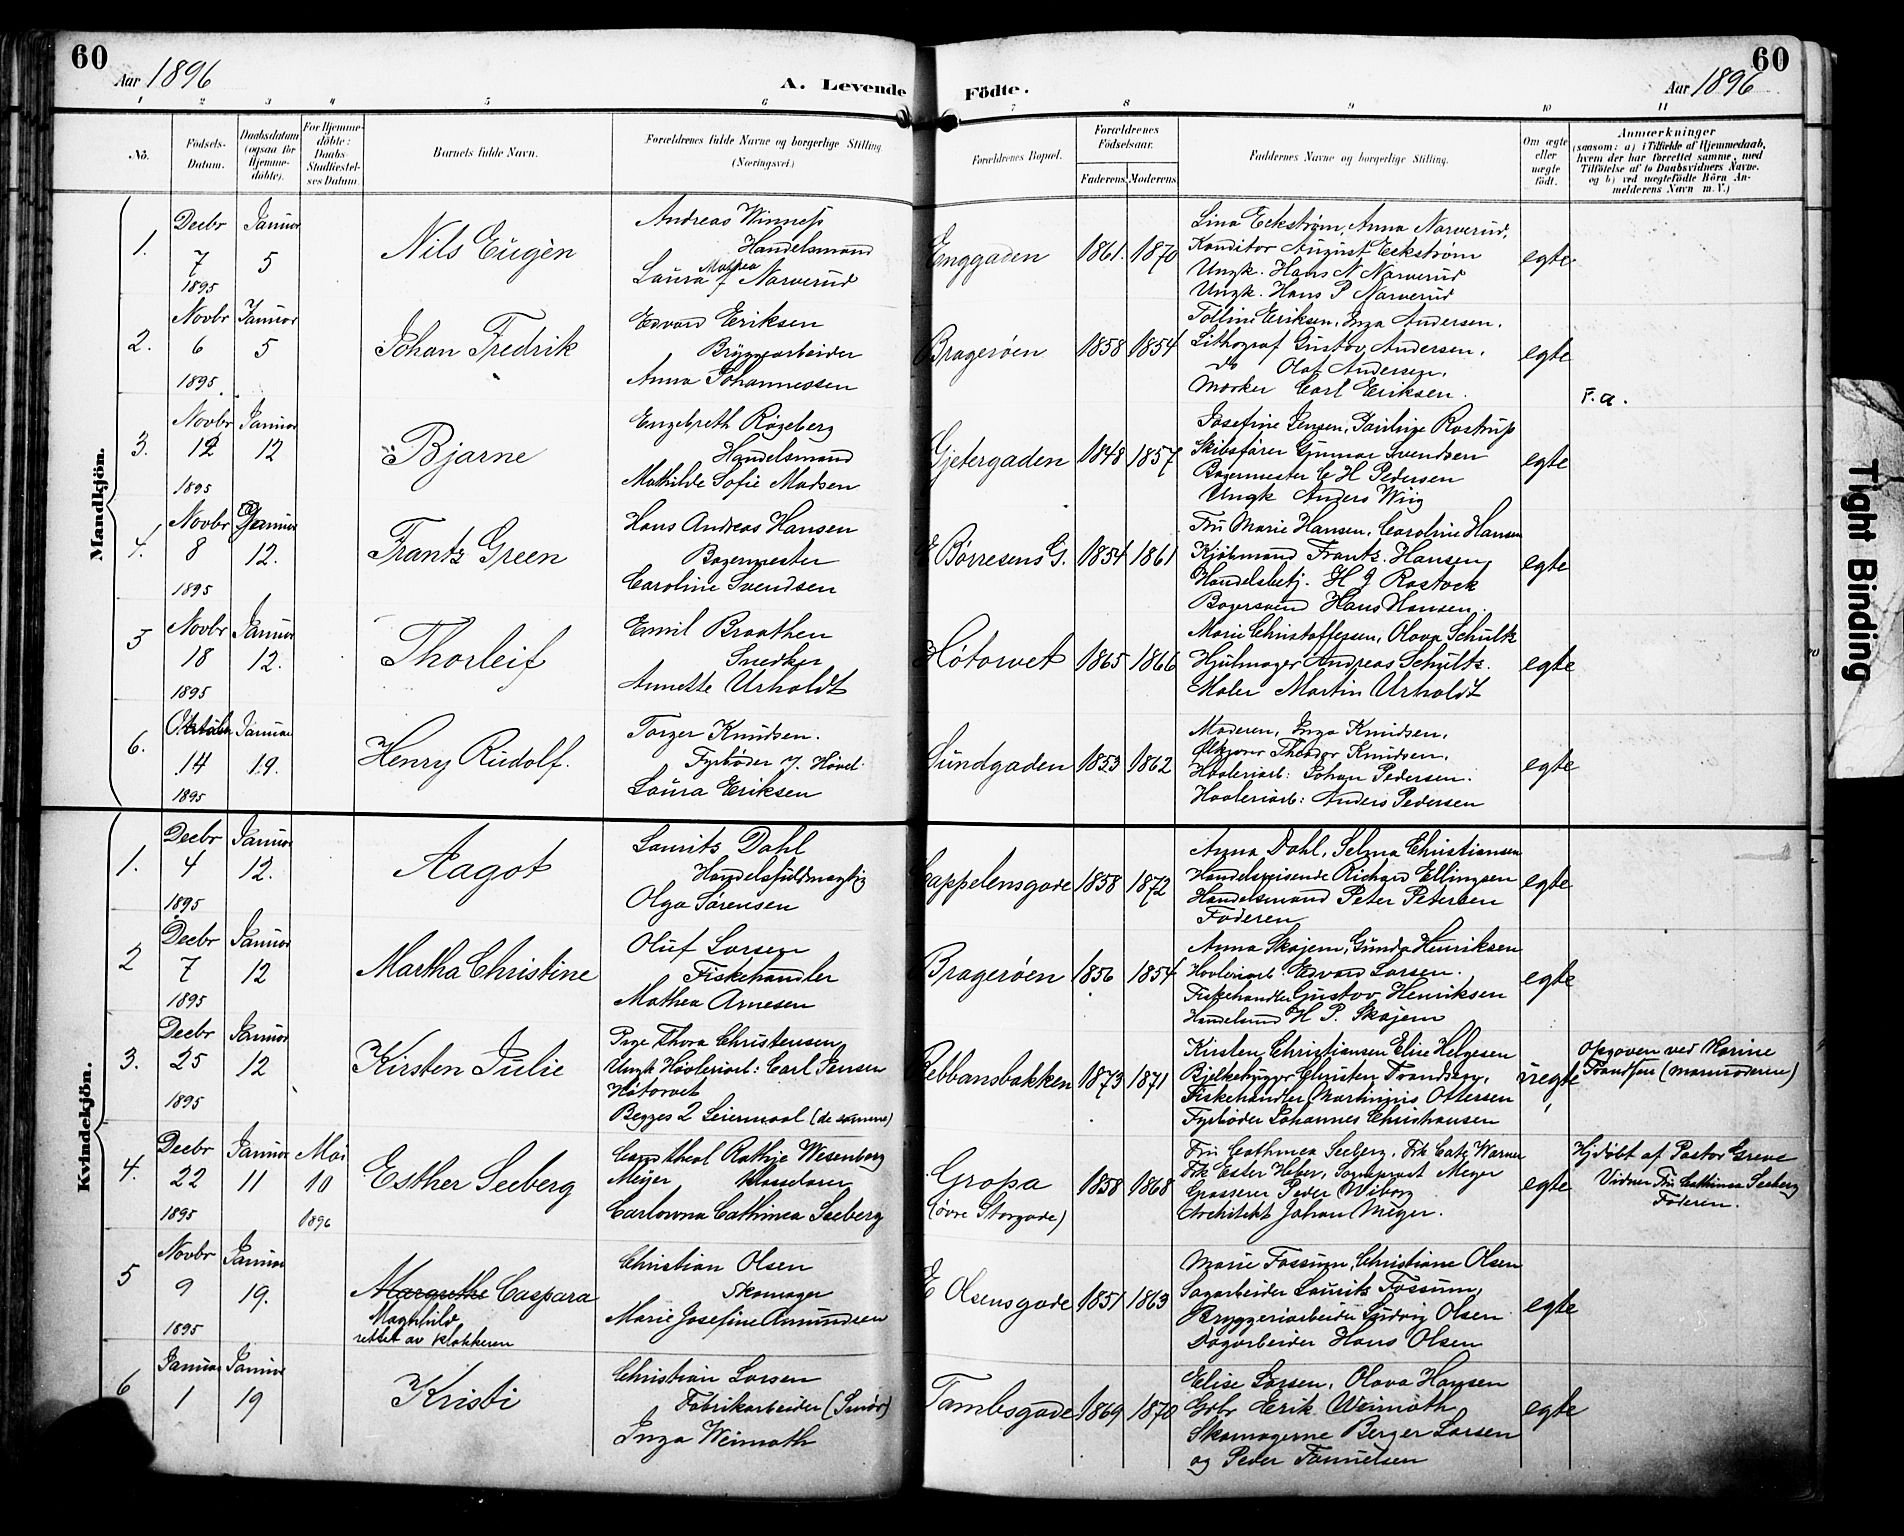 60
Aar 1896
A. Levende Födte.
Aar 1896
60
1 2 3 4 5 6 7 8 9 10 11
No.
Födsels-Datum.
Daabsdatum (ogsaa for Hjemme-döbte).
For Hjemme-döbte: Daabs Stadfæstel-ses Datum.
Barnets fulde Navn.
Forældrenes fulde Navne og borgerlige Stilling (Næringsvei.)
Forældrenes Bopæl.
Forældrenes Födselsaar.
Faderens. Moderens.
Faddernes Navne og borgerlige Stilling.
Om ægte eller uægte födt.
Anmærkninger
(saasom: a) i Tilfælde af Hjemmedaab,
hvem der har forrettet samme, med
Tilföielse af to Daabsvidners Navne,
og b) ved uægtefödte Börn An-
melderens Navn m. V.)
Mandkjön.
1. Decbr 7 1895
Januar 5
Nils Eugèn
Andreas Winness
Handelsmand
Laura Mathea Narverud
Enggaden
1861. 1870
Lina Eckstrøm, Anna Narverud,
Konditor August Eckstrøm
Ungk. Hans N Narverud
Ungk. Hans P Narverud
egte
2. Novbr 6 1895
Januar 5
Johan Fredrik
Edvard Eriksen
Bryggearbeider
Anna Johannessen
Bragerøen
1858 1854
Tolline Eriksen, Inga Andersen.
Lithograf Gustav Andersen.
do Olaf Andersen.
Mærker Carl Eriksen.
egte
F. a.
3. Novbr 12 1895
Januar 12
Bjarne
Engebreth Rogeberg
Handelsmand
Mathilde Sofie Madsen
Gjetergaden
1848 1857
Josefine Jensen, Rostrup
Skibsfører Gunnar Svendsen
Bagermester C H Pedersen
Ungk Anders Wiig
egte
4. Novbr 8 1895
Januar 12.
Frantz Green
Hans Andreas Hansen
Bagermester
Caroline Svendsen
E Børresens G.
1854 1861
Fru Marie Hansen, Caroline Hansen
Kjøbmand Frantz. Hansen,
Handelsbetj. H J Rostock
Bagersvend Hans Hansen.
egte
5 Novbr 18 1895
Januar 12.
Thorleif
Emil Braathen
Snedker
Annette Urholdt
Høtorvet
1865 1866
Marie Christoffersen, Olava Schultz
Hjulmager Andreas Schultz.
Maler Martin Urholdt
egte
6. Oktober 14 1895
Januar 19.
Henry Rudolf.
Torger Knudsen.
Fyrbøder v. Høvel.
Laura Eriksen
Sundgaden
1853 1862
Moderen, Inga Knudsen,
Theodor Knudsen,
Høvleriarb: Johan Pedersen.
Høvleriarb: Anders Pedersen
egte
Kvindekjön.
1. Decbr 4 1895
Januar 12.
Aagot
Laurits Dahl
Handelsfuldmægtig
Olga Sørensen
Cappelensgade
1858 1872
Anna Dahl, Selma Christiansen
Handelsreisende Richard Ellingsen
Handelsmand Peter Petersen
Faderen
egte
2 Decbr 7 1895
Januar 12
Martha Christine
Oluf Larsen
Fiskehandler
Mathea Arnesen
Bragerøen
1856 1854
Anna Skojem, Gunda Henriksen
Høvleriarb. Edvard Larsen.
Fiskehandler Gustav Henriksen
Handelsmd H P. Skojem
egte
3. Decbr 25 1895
Januar 12
Kirsten Julie
Pige Thora Christensen,
Ungk Høvleriarb: Carl Jensen
Høtorvet
Begges 2 Leiermaal (de samme)
Rebbansbakken
1873 1871
Kirsten Christiansen Elise Helgesen
Bjelkehugger Christen Trandsen,
Fiskehandler Martinius Ottersen
Fyrbøder Johannes Christiansen
uegte
Opgaven ved Karine
Trandsen (mormoderen)
4. Decbr 22 1895
Januar 11
Mai 10 1896
Esther Seeberg
Cand theol Rathje Wesenberg
Meyer Klasselærer
Carlowna Cathinca Seeberg
Gropa
(øvre Storgade)
1858 1868
Fru Cathinca Seeberg, Frk Cath. Warner
Frk Ester Heber, Sogneprest Meyer
Grosserer Peder Wiborg
Architekt Johan Meyer.
egte
Hjdøbt af Pastor Greve
Vidner Fru Cathinca Seeberg
Faderen.
5 Novbr 9 1895
Januar 19.
Margrethe Caspara
Magnhild
rettet av klokkeren
Christian Olsen
Skomager
Marie Josefine Amundsen
E Olsensgade
1851 1863
Marie Fossum, Christiane Olsen
Sagarbeider Laurits Fossum,
Bryggeriarbeider Ludvig Olsen
Dagarbeider Hans Olsen
egte
6 Januar 1
Januar 19
Kristi
Christian Larsen
Fabrikarbeider (Smør)
Inga Weimoth
Tambsgade
1869 1870
Elise Larsen, Olava Hansen
Gbr Erik Weimoth
Skomagerne Berger Larsen
og Peder
egte
Tight Binding